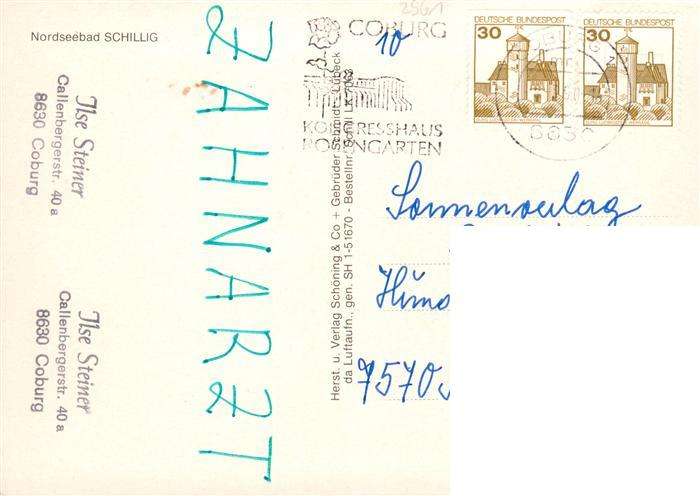 Nordseebad SCHILLIG
Ilse Steiner
Callenbergerstr. 40 a
8630 Coburg
Ilse Steiner
Callenbergerstr. 40 a
8630 Coburg
ZAHNARZT
Herst. u. Verlag Schöning & Co + Gebrüder Schmidt - Lübeck
da Luftaufn., gen. SH 1-51670 - Bestellnr.
2961
10
COBURG
KONGRESSHAUS
ROSENGARTEN
DEUTSCHE BUNDESPOST
30
DEUTSCHE BUNDESPOST
30
8630
Sonnenverlag
7570